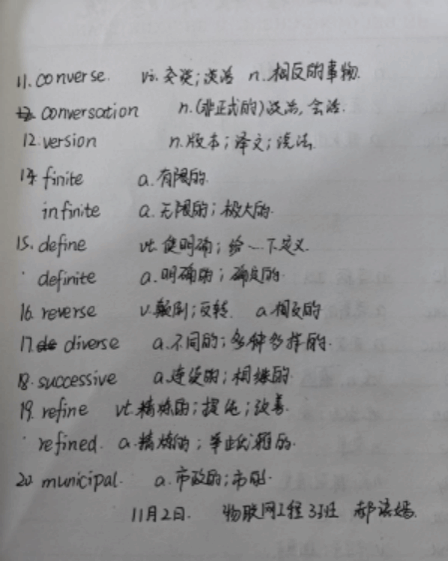 11. converse. vi. 交谈; 谈话 n. 相反的事物.
conversation n. (非正式的) 谈话, 会话.
12. version n. 版本; 译文; 说法.
14. finite a. 有限的.
infinite a. 无限的; 极大的.
15. define vt. 使明确; 给…下定义.
definite a. 明确的; 确定的.
16. reverse v. 颠倒; 反转. a. 相反的
17. diverse a. 不同的; 多种多样的.
18. successive a. 连续的; 相继的.
19. refine vt. 精炼的; 提纯; 改善.
refined. a. 精炼的; 举止文雅的.
20. municipal. a. 市政的; 市的.
11月2日. 物联网工程3班